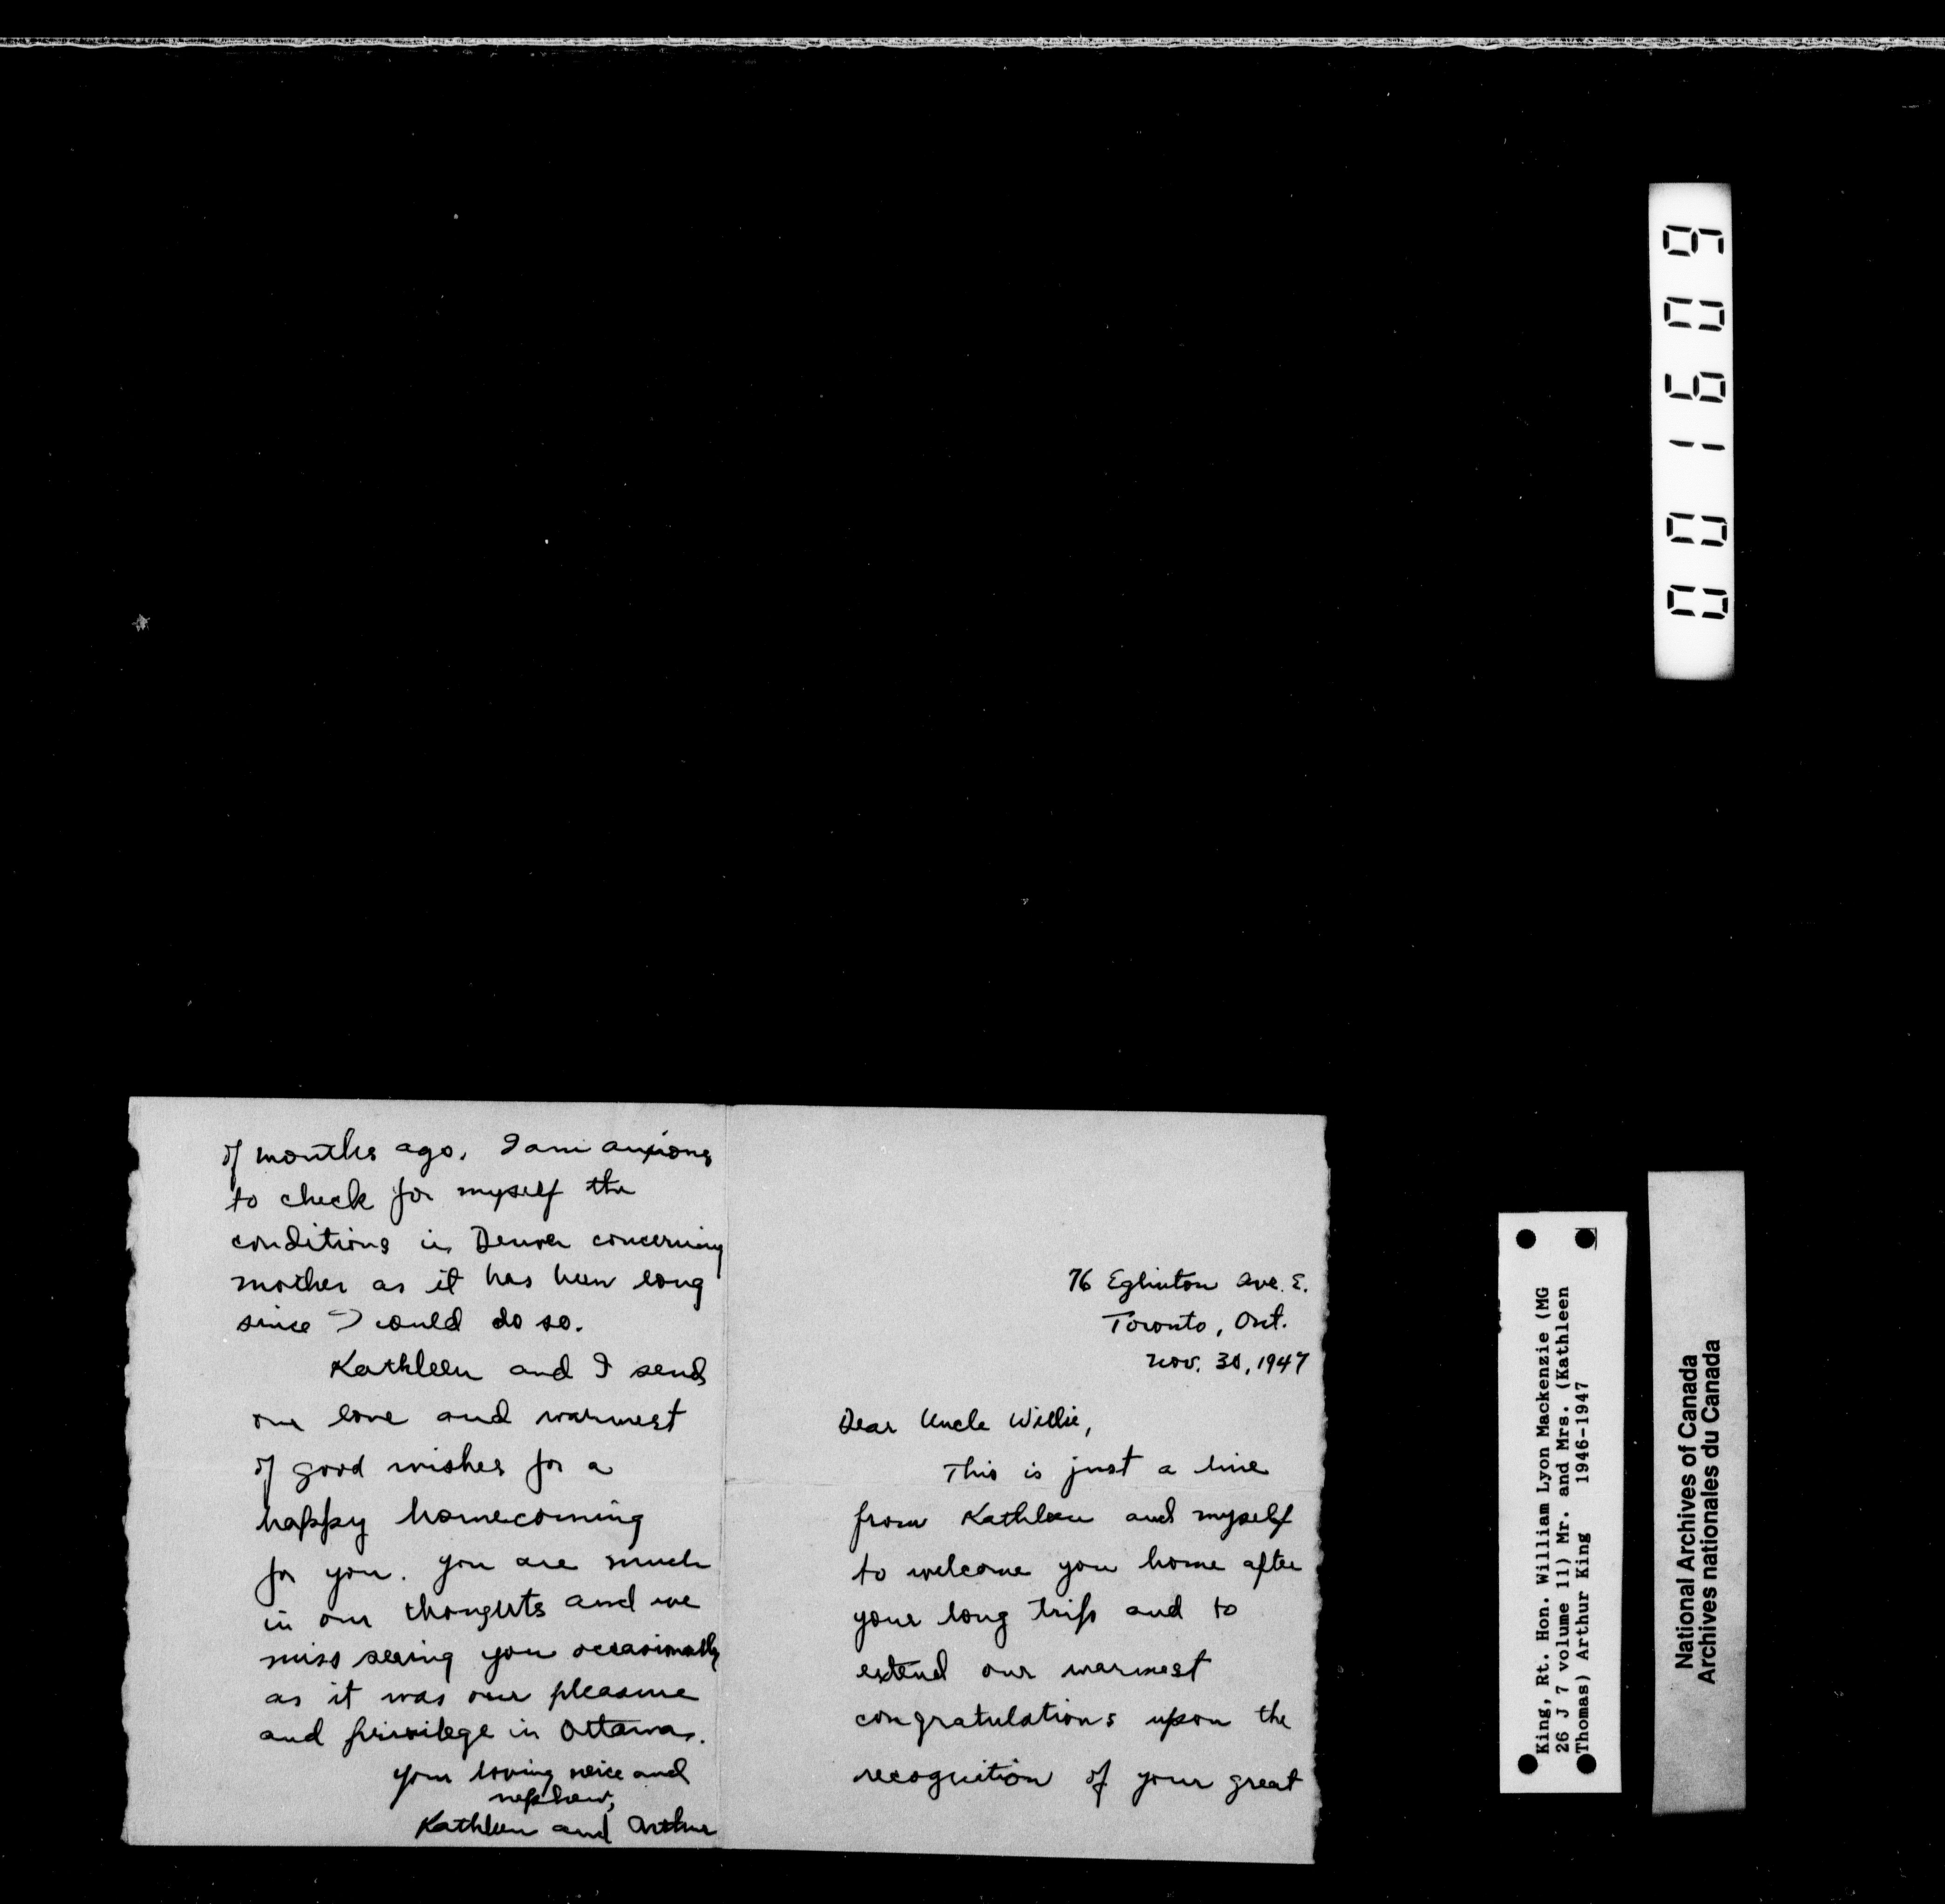 of months ago. I am anxious
to check for myself the
conditions in Denver concerning
mother as it has been long
since I could do so.
Kathleen and I send
our love and warmest
of good wishes for a
happy homecoming
for you. You are much
in our thoughts and we
miss seeing you occasionally
as it was our pleasure
and privilege in Ottawa.
Your loving neice and
nephew,
Kathleen and Arthur
76 Eglinton Ave. E.
Toronto, Ont.
Nov. 30, 1947
Dear Uncle Willie,
This is just a line
from Kathleen and myself
to welcome you home after
your long trip and to
extend our warmest
congratulations upon the
recognition of your great
001609
King, Rt. Hon. William Lyon Mackenzie (MG
26 J 7 volume 11) Mr. and Mrs. (Kathleen
Thomas) Arthur King 1946-1947
National Archives of Canada
Archives nationales du Canada